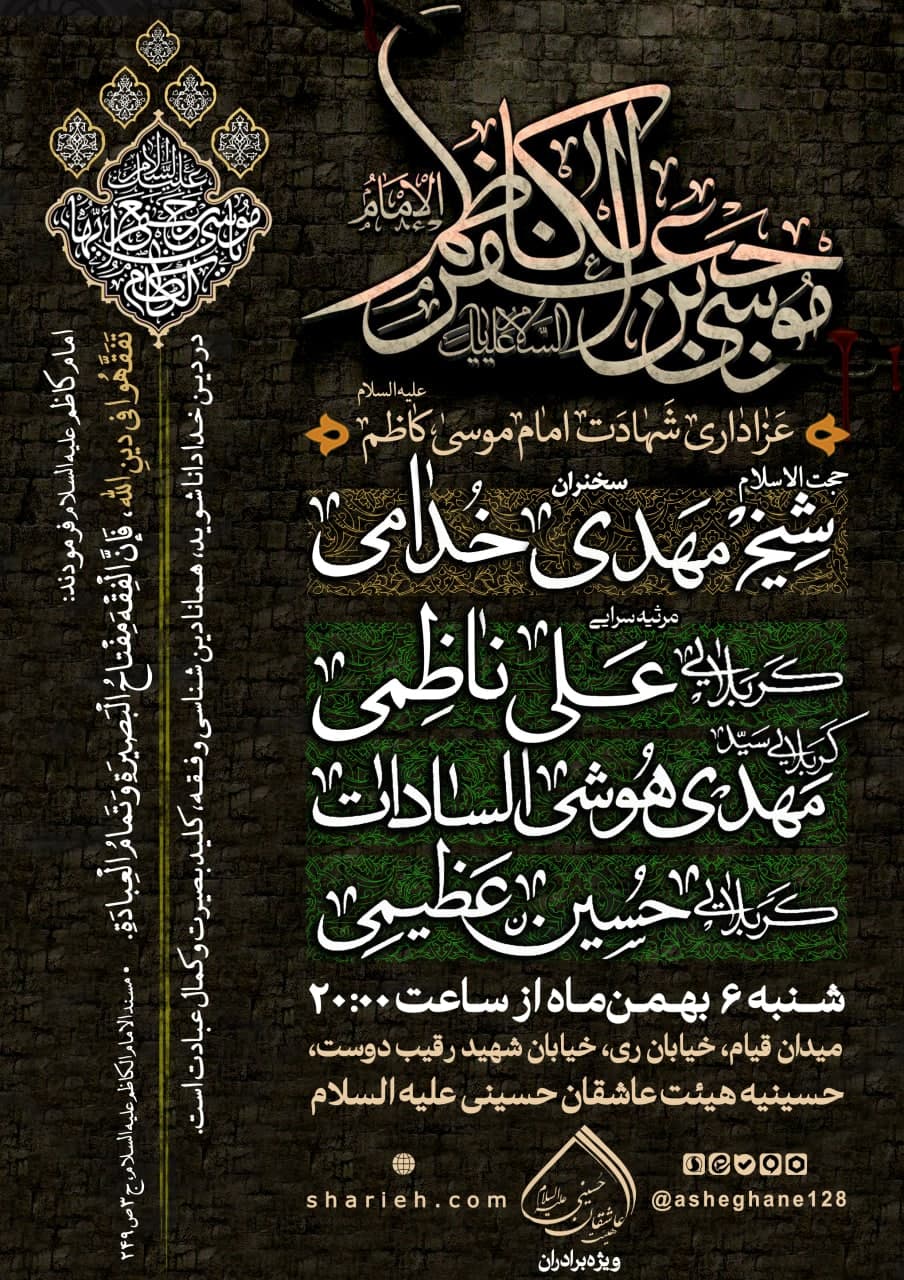 الإمام
موسی بن جعفر الکاظم
السلام علیک
علیه السلام
عزاداری شهادت امام موسی کاظم
حجت الاسلام
سخنران
شیخ مهدی خدامی
مرثیه سرایی
کربلایی علی ناظمی
کربلایی سیّد
مهدی هوشی السادات
کربلایی حسین عظیمی
شنبه ۶ بهمن‌ماه از ساعت ۲۰:۰۰
میدان قیام، خیابان ری، خیابان شهید رقیب دوست،
حسینیه هیئت عاشقان حسینی علیه السلام
@asheghane128
sharieh.com
هیئت عاشقان حسینی علیه السلام
ویژه برادران
علیه السلام
یا موسی بن جعفر ایها الکاظم
امام کاظم علیه السلام فرمودند:
تَفَقَّهُوا فی دینِ الله، فَإنَّ الْفِقْهَ مِفْتاحُ الْبَصیرَةِ وَ تَمامُ الْعِبادَةِ.
در دین خدا دانا شوید، همانا دین شناسی و فقه، کلید بصیرت و کمال عبادت است.
• مسند الامام الکاظم علیه السلام، ج ۳ ص ۲۴۹